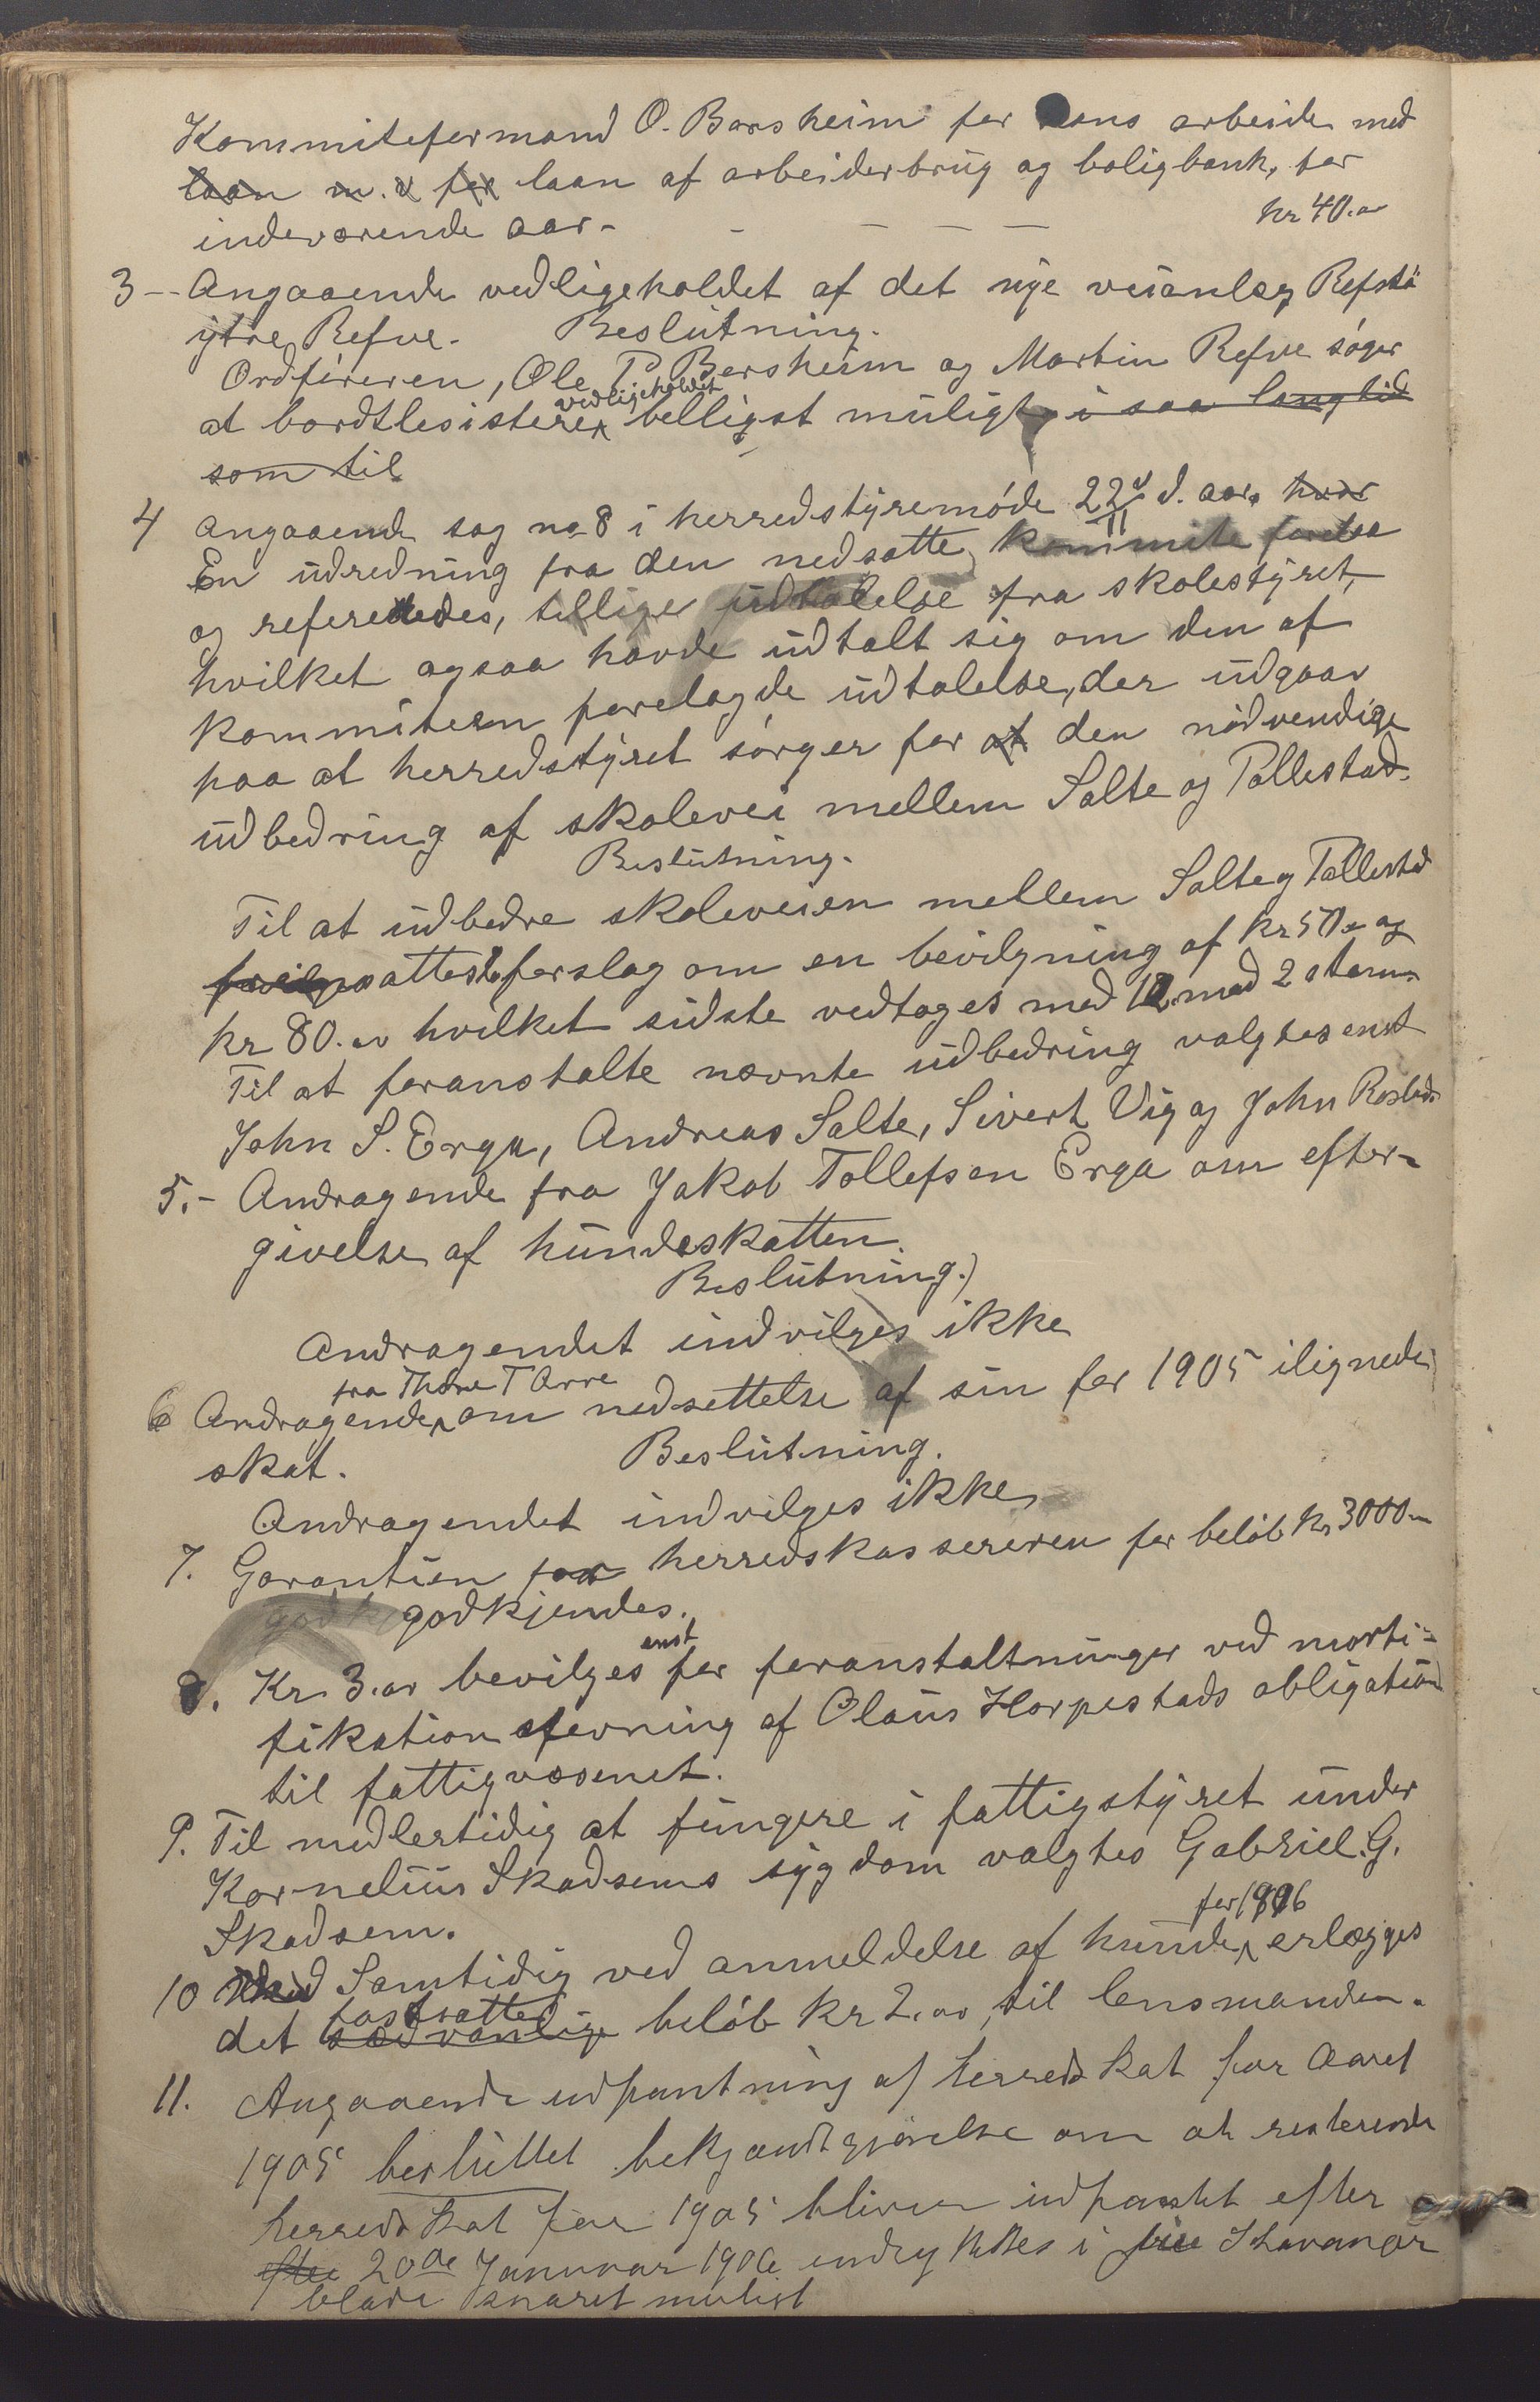 Kommiteformand O. Borsheim for hans arbeide med
laan m. v for laan af arbeiderbrug og boligbank, for
indeværende aar. - - - - - kr 40.00
3 -- Angaaende vedligeholdet af det nye veianlæg Refstø
ytre Refve. Beslutning.
Ordføreren, Ole T. Borsheim og Martin Refve søger
at bordtlesistere vedligeholdet belligst muligt i saa lang tid
som til
4 Angaaende sag no 8 i herredstyremøde 22/11 d. aar. hvor
En udredning fra den nedsatte kommite forelaa
og refereredes, tillige udtalelse fra skolestyret,
hvilket ogsaa havde udtalt sig om den af
kommiteen forelagde udtalelse, der udgaar
paa at herredstyret sørger for at den nødvendige
udbedring af skolevei mellem Salte og Tollestad.
Beslutning.
Til at udbedre skoleveien mellem Salte og Tollestad
sattes forslag om en bevilgning af kr 50.00 og
kr 80.00 hvilket sidste vedtoges med 12 mod 2 stem.
Til at foranstalte nævnte udbedring valgtes enst
John S. Erga, Andreas Salte, Sivert Vig og John
5. - Andragende fra Jakob Tollefsen Erga om efter-
givelse af hundeskatten.
Beslutning.
Andragendet indvilges ikke
6 Andragende fra Thore T Orre om nedsettelse af sin for 1905 ilignede
skat. Beslutning.
Andragendet indvilges ikke
7. Garantien for herredskassereren for beløb kr 3000.00
godk godkjendes.
8. Kr. 3.00 bevilges enst for foranstaltninger ved morti-
fikationstevning af Olaus Horpestads obligation
til fattigvæsenet.
9. Til medlertidig at fungere i fattigstyret under
Kornelius Skadsems sygdom valgtes Gabriel. G.
Skadsem.
10 Ved Samtidig ved anmeldelse af hunde for 1906 erlægges
det sædvanlige fastsatte beløb kr 2.00 til lensmanden.
11. Angaaende udpantning af herredskat for Aaret
1905 besluttet bekjendtgjørelse om at resterende
herredskat for 1905 bliver udpantet efter
efter 20de Januar 1906 indrykkes i Stavanger
blade snarest muligt